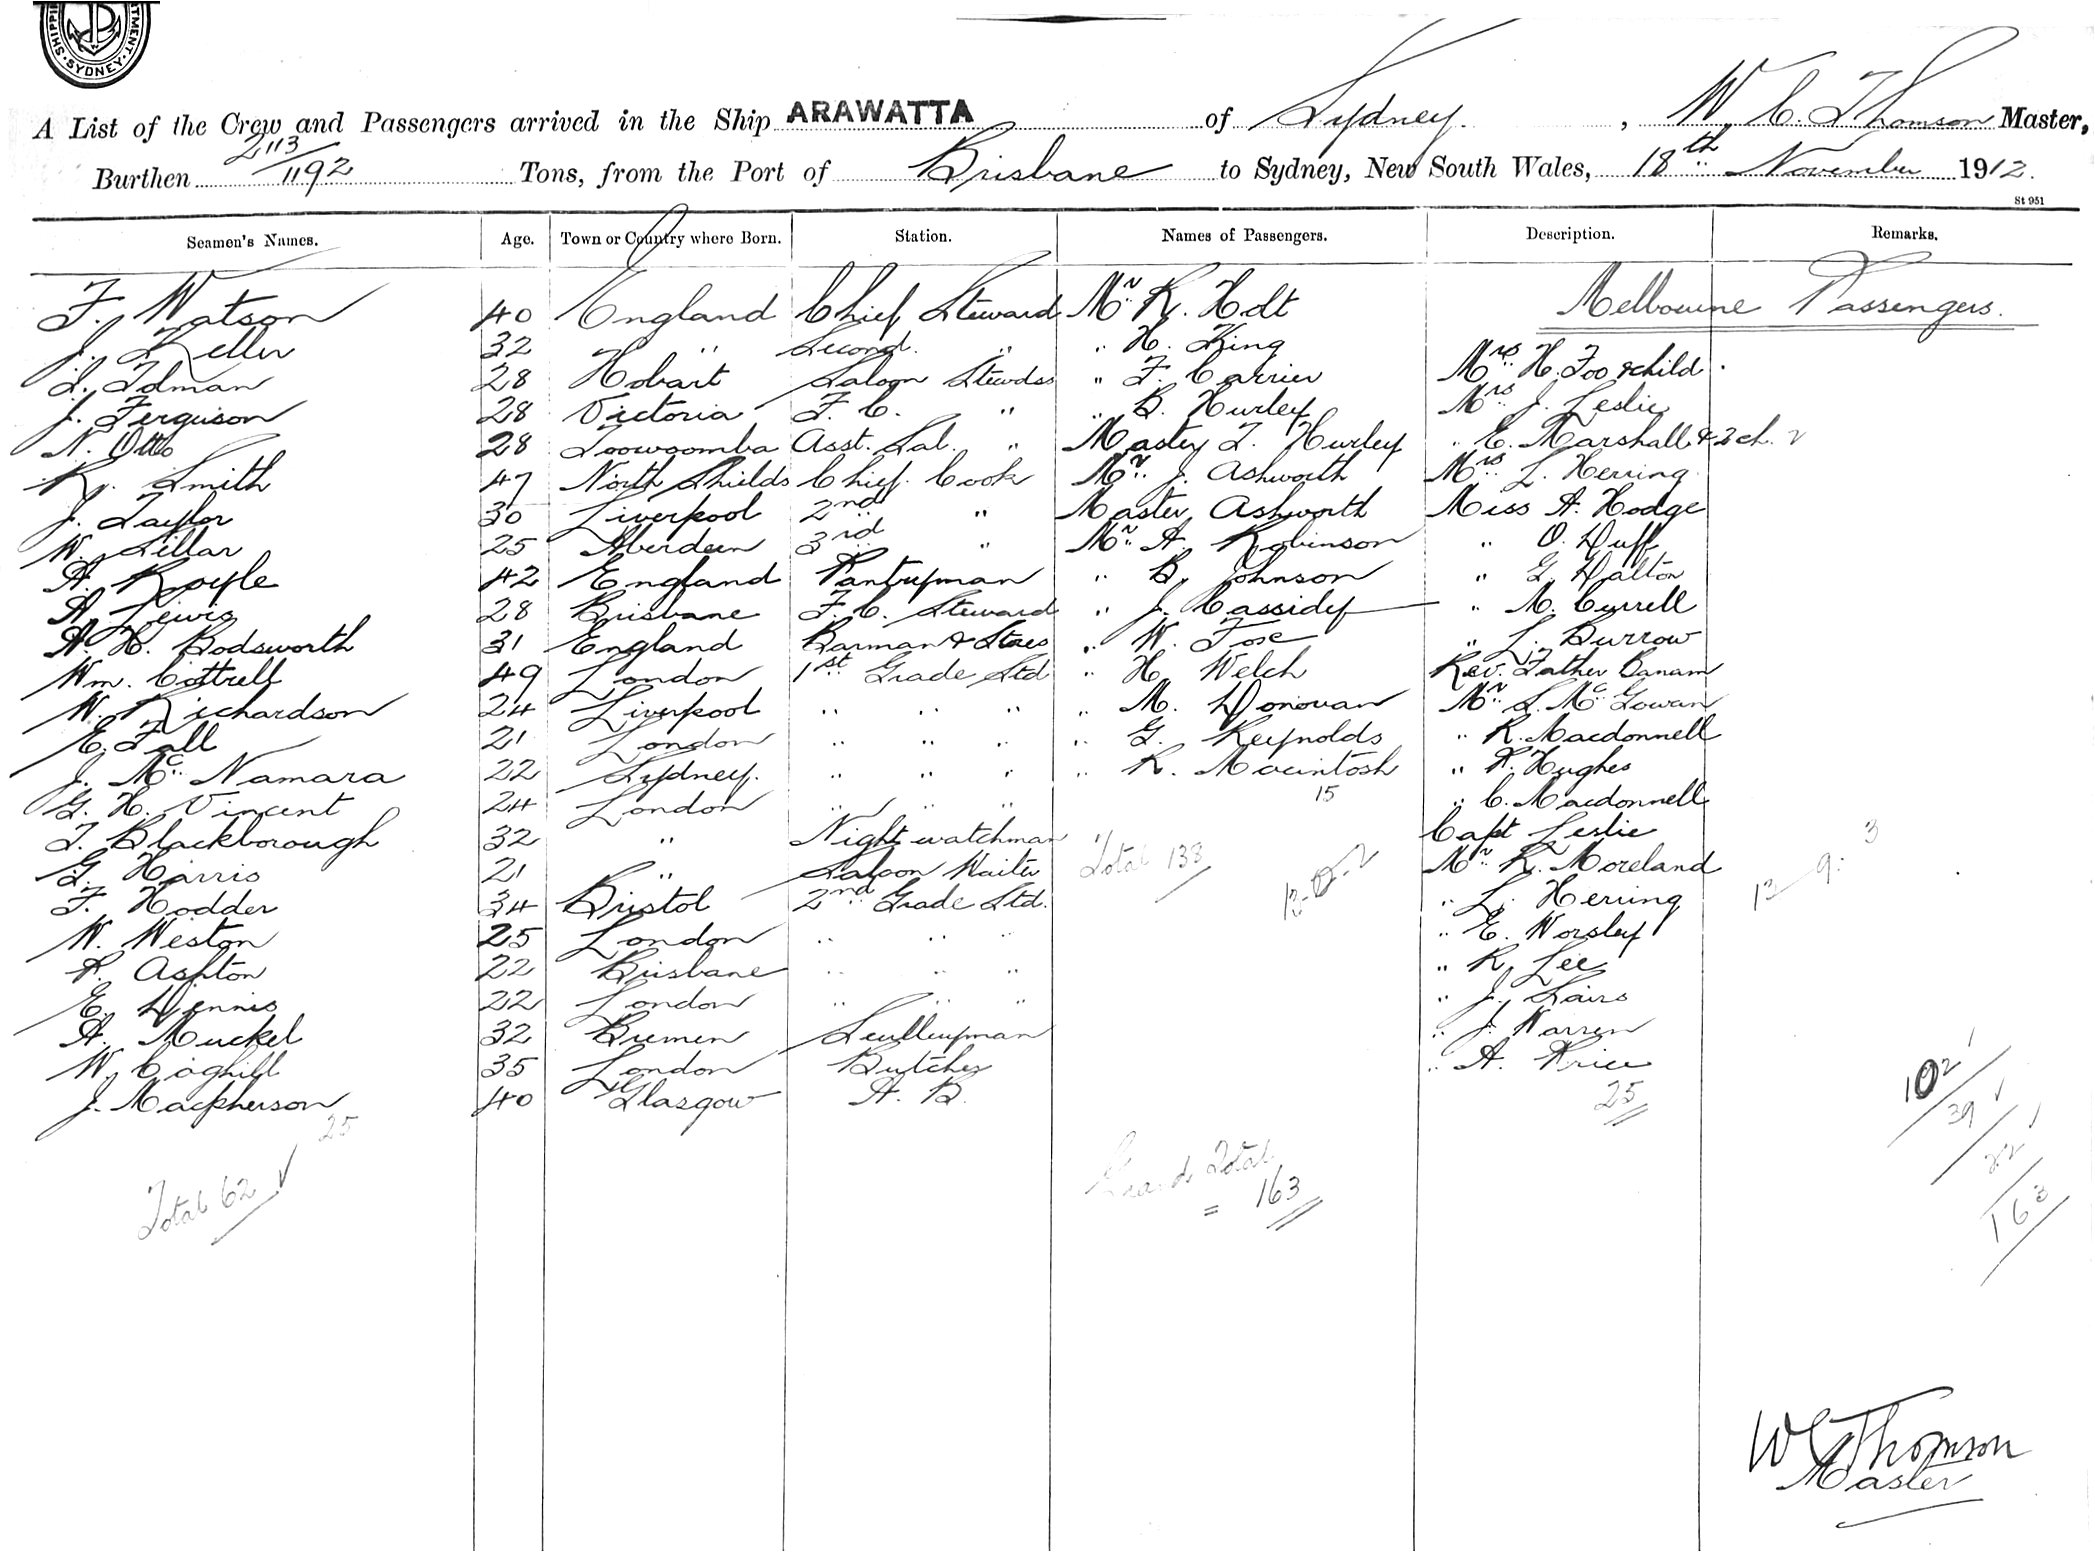 SHIPPING DEPARTMENT. SYDNEY.
A List of the Crew and Passengers arrived in the Ship ARAWATTA of Sydney, W. C. Thomson Master,
Burthen 2113/1192 Tons, from the Port of Brisbane to Sydney, New South Wales, 18th November 1912.
St 951
Seamen's Names. Age. Town or Country where Born. Station. Names of Passengers. Description. Remarks.
F. Watson 40 England Chief Steward Mr R. Holt Melbourne Passengers.
J. Keller 32 " Second " " H. King
L. Idman 28 Hobart Saloon Stewdss " F. Carrier Mrs H. Foo & child
J. Ferguson 28 Victoria F. C. " " B. Hurley Mrs J. Leslie
N. Otto 28 Toowoomba Asst. Sal. " Master T. Hurley " E. Marshall & 2 ch.
R. Smith 47 North Shields Chief Cook Mr J. Ashworth Mrs L. Herring
J. Taylor 30 Liverpool 2nd " Master Ashworth Miss A. Hodge
W. Sillar 25 Aberdeen 3rd " Mr A. Robinson " O. Duff
A. Royle 42 England Pantryman " B. Johnson " G. Dalton
A. Lewis 28 Brisbane F. C. Steward " J. Cassidy " M. Cyrrell
A. H. Bodsworth 31 England Barman & Stores " W. Fose " L. Burrow
Wm. Cottrell 49 London 1st Grade Std " H. Welch Rev. Father Canam
W. Richardson 24 Liverpool " " " " M. Donovan Mr S. McGowan
E. Fall 21 London " " " " G. Reynolds " R. Macdonnell
J. McNamara 22 Sydney. " " " " R. Macintosh " P. Hughes
G. H. Vincent 24 London " " " 15 " C. Macdonnell
T. Blackborough 32 " Night watchman Total 138 Capt Leslie 3
G. Harris 21 " Saloon Waiter Mr R. Moreland 13 9
F. Hodder 34 Bristol 2nd Grade Std. 13-0-2 " L. Herring
W. Weston 25 London " " " " E. Worsley
P. Ashton 22 Brisbane " " " " R. Lee
E. Dennis 22 London " " " " J. Sairs
A. Muckel 32 Bremen Sculleryman " J. Warren
W. Coghill 35 London Butcher " A. Price
J. Macpherson 40 Glasgow A. B. 25
25
102
39
22
163
Total 62
Grand Total
= 163
W C Thomson
Master